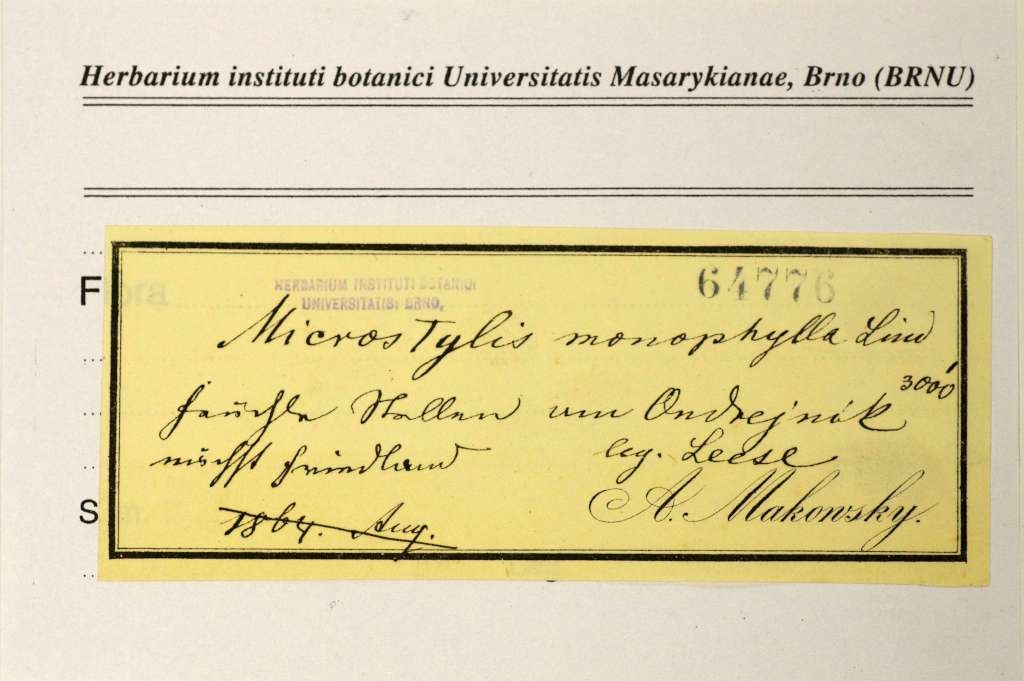 Herbarium instituti botanici Universitatis Masarykianae, Brno (BRNU)
F
HERBARIUM INSTITUTI BOTANICI
UNIVERSITATIS: BRNO,
64776
Microstylis monophylla Lind
3000'
feuchte Stellen am Ondrejnik
nächst Friedland
leg. Leese
1864. Aug.
A. Makowsky.
S